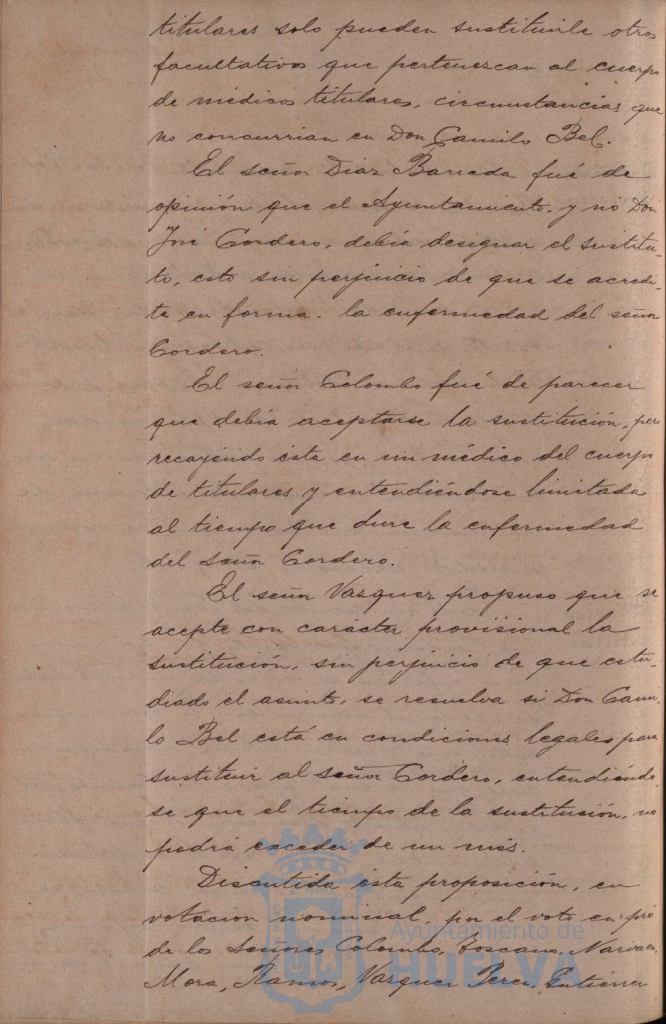 titulares solo pueden sustituirle otros
facultativos que pertenezcan al cuerpo
de médicos titulares, circunstancias que
no concurrian en Don Camilo Bel.
El señor Diaz Barreda fué de
opinión que el Ayuntamiento. y nó Don
José Cordero, debía designar el sustitu-
to, esto sin perjuicio de que se acredi-
te en forma. la enfermedad del señor
Cordero.
El señor Colombo fué de parecer
que debía aceptarse la sustitución, pero
recayendo ésta en un médico del cuerpo
de titulares y entendiéndose limitada
al tiempo que dure la enfermedad
del señor Cordero.
El señor Vazquez propuso que se
acepte con carácter provisional la
sustitución, sin perjuicio de que estu-
diado el asunto, se resuelva si Don Cami-
lo Bel está en condiciones legales para
sustituir al señor Cordero, entendiéndo-
se que el tiempo de la sustitución, no
podrá exceder de un més.
Discutida esta proposición, en
votacion nominal, por el voto en pró
de los Señores Colombo, Toscano,
Mora, Ramos, Vazquez Perez, Gutierrez
Ayuntamiento de
HUELVA